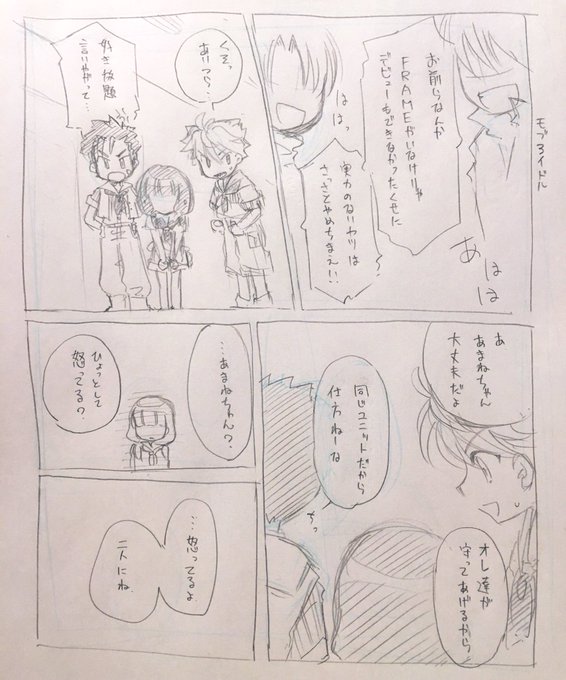 モブろイドル
お前らなんか
FRAMEがいなけりゃ
デビューもできなかったくせに
あははは
ははっ
実力のないヤツは
さっさとやめちまえ!!
くそっ
あいつら…
好き放題
言いやがって…
あ
あまねちゃん
大丈夫だよ
同じユニットだから
仕方ねーな
ちっ
オレ達が
守ってあげるから
…あまねちゃん?
ひょっとして
怒ってる?
…怒ってるよ
二人にね